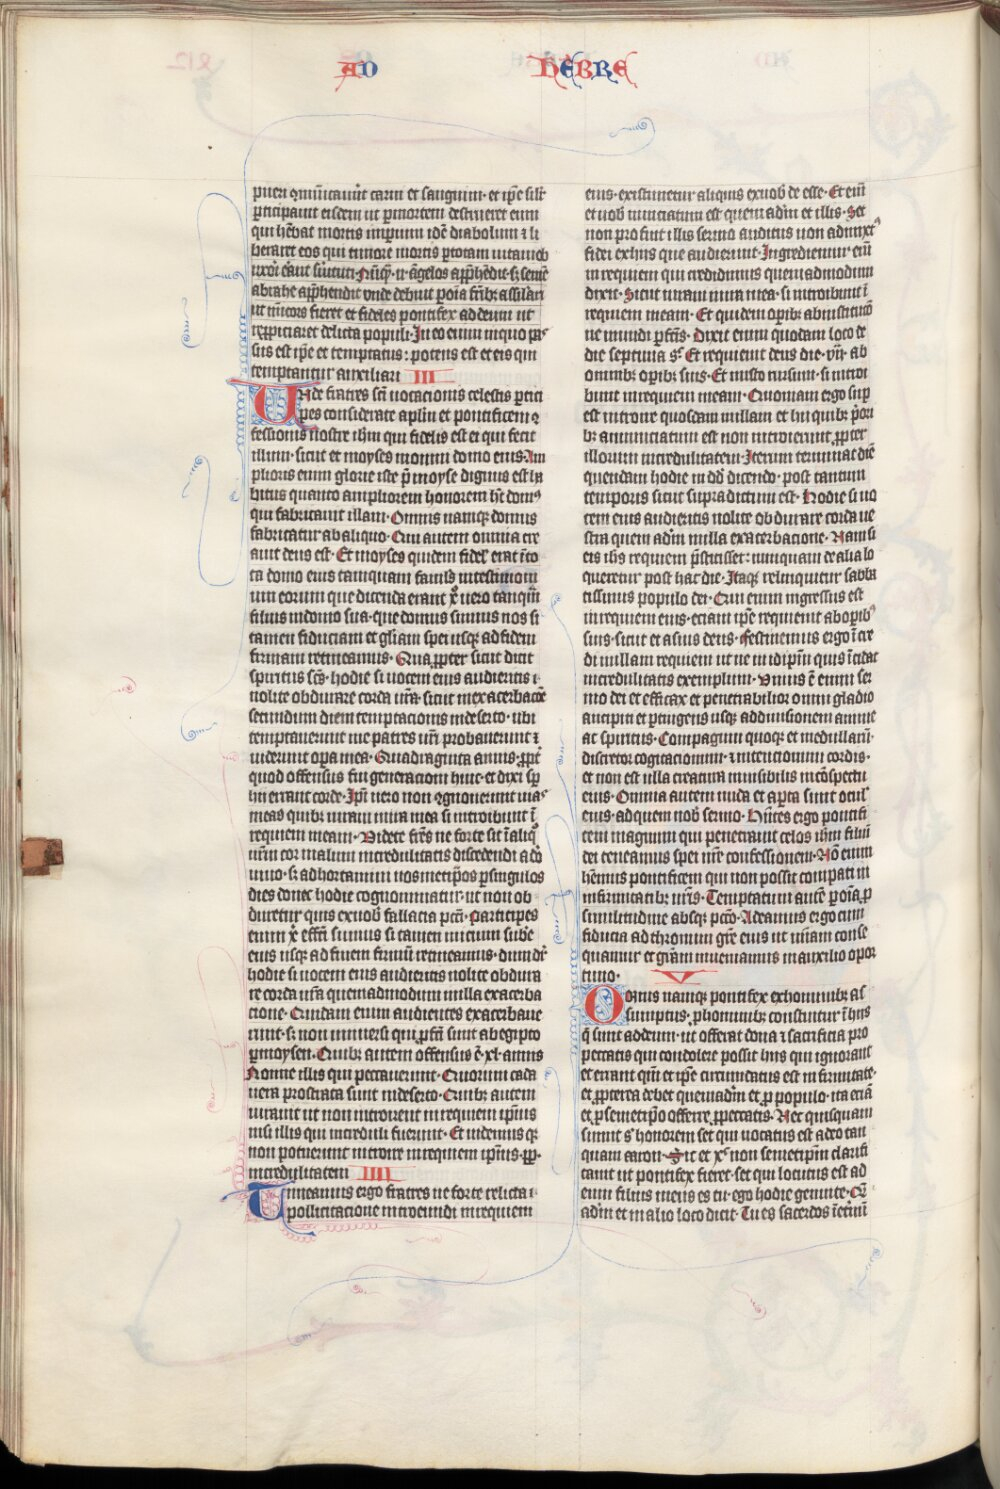 AD HEBRE
pueri cōmūicauīt carni et sanguini· et ip̄e silr̄
p̄ticipauit eisdem ut p̄ mortem destrueret eum
qui hēbat mortis imperium id ē diabolum ⁊ li
beraret eos qui timore mortis p̄ totam uitam ob
noxii erāt suituti· Nūq̄· n̄ āgelos app̄hēdit· s; semē
abrahe app̄hendit vnde debuit p̄ oīa frīb; assīlari
ut mīcors fieret et fideles pontifex ad deum ut
repp̄iciaret delicta populi· In eo enim in quo pas
sus est ip̄e et temptatus: potens est et eis qui
temptantur auxiliari III
Unde fratres sc̄i uocacionis celestis p̄tici
pes considerate aplm̄ et pontificem ꝯ
fessionis nostre ihm̄ qui fidelis est ei qui fecit
illum· sicut et moyses in omni domo eius· Am
plioris enim glorie iste p̄ moyse dignus est ha
bitus quanto ampliorem honorem h̄t dom⁹
qui fabricauit illam· Omnis namq; domus
fabricatur ab aliquo· Qui autem omnia cre
auit deus est· Et moyses quidem fidel' erat ī to
ta domo eius tamquam famul⁹ in testimoni
um eorum que dicenda erant x̄c uero tanq̄m
filius in domo sua· que domus sumus nos si
tamen fiduciam et gl̄iam spei usq; ad finem
firmam retineamus· Qua ꝓpter sicut dicit
spiritus sc̄s· hodie si uocem eius audieritis ·
nolite obdurare corda ur̄a sicut in exacerbacōe
secundum diem temptacionis in deserto· ubi
temptauerunt me patres ur̄i probauerunt ⁊
uiderunt opa mea· Quadraginta annis· ꝓpt̄
quod offensus fui generacioni huic· et dixi sp̄
hii errant corde· Ip̄i uero non ꝯgnouerunt uias
meas quib; iuraui in ira mea si introibunt ī
requiem meam· Uidete fr̄es ne forte sit ī aliq̄
ur̄m cor malum incredulitatis discedendi a dō
uiuo· s; adhortamini uosmetip̄os p̄ singulos
dies donec hodie cognominatur· ut non ob
duretur quis ex uob' fallacia pc̄ti· Participes
enim x̄i effc̄i sumus si tamen inicium sub̄e
eius usq; ad finem firmū retineamus· dum dr̄
hodie si uocem eius audieritis nolite obdura
re corda ur̄a quemadmodum in illa exacerba
cione· Quidam enim audientes exacerbaue
runt· s; non uniuersi qui ꝓfc̄i sunt ab egipto
p̄ moysen· Quib; autem offensus ē· xl· annis
Nonne illis qui peccauerunt· Quorum cada
uera prostrata sunt in deserto· Quib; autem
iurauit ut non introirent in requiem ip̄ius
nisi illis qui increduli fuerunt· Et uidemus q;
non potuerunt introire in requiem ip̄ius· ꝓp̄·
incredulitatem IIII
Timeamus ergo fratres ne forte relicta ·
pollicitacione introeundi in requiem
eius· existimetur aliquis ex uob' de esse· Et enī
et uob' nunciatum est quem adm̄ et illis· Set
non profuit illis sermo auditus non admixt⁹
fidei ex hiis que audierunt· Ingrediemur enī
in requiem qui credidimus quemadmodum
dixit· Sicut iuraui in ira mea· si introibunt ī
requiem meam· Et quidem opib; ab institucō
ne mundi p̄fc̄is· Dixit enim quodam loco de
die septima s̄· Et requieuit deus die· vii· ab
omnib; opib; suis· Et in isto rursum· si introi
bunt in requiem meam· Quoniam ergo sup
est introire quosdam in illam et hii quib; p̄ori
b; annunciatum est non introierunt ꝓpter
illorum incredulitatem· Iterum terminat diē
quendam hodie in dd̄ dicendo· post tantum
temporis sicut supra dictum est· Hodie si uo
cem eius audieritis nolite obdurare corda ue
stra quem adm̄ in illa exacerbacione· Nam si
eis ih̄s requiem p̄stitisset: numquam de alia lo
queretur post hac die· Itaq; relinquitur sabba
tissimus populo dei· Qui enim ingressus est
in requiem eius· eciam ip̄e requieuit ab opib⁹
suis· sicut et a suis deus· Festinemus ergo ī cre
di in illam requiem ut ne in id ip̄m quis īcidat
incredulitatis exemplum· Viuus ē enim ser
mo dei et efficax et penetrabilior omni gladio
ancipiti et p̄tingens usq; ad diuisionem anime
ac spiritus· Compagum quoq; et medullarū·
discretor cogitacionum· ⁊ intencionum cordis·
et non est ulla creatura inuisibilis in cōspectu
eius· Omnia autem nuda et apta sunt ocul'
eius· ad quem nob' sermo· Hn̄tes ergo pontifi
cem magnum qui penetrauit celos ihm̄ filiū
dei teneamus spei nr̄e confessionem· Nō enim
hēmus pontificem qui non possit compati in
firmitatib; nr̄is· Temptatum autē p̄ oīa ꝓ
similitudine absq; pc̄cō· Adeamus ergo cum
fiducia ad thronum gr̄e eius ut mīam conse
quamur et gr̄am inueniamus in auxilio opor
tuno· V
Omnis namq; pontifex ex hominib; as
sumptus· ꝓ hominib; constituitur ī hiis
q̄ sunt ad deum· ut offerat dona ⁊ sacrificia pro
peccatis qui condolere possit hiis qui ignorant
et errant qm̄ et ip̄e circumdatus est infirmitate·
et ꝓpterea debet quemadm̄ et ꝓ populo· ita eciā
et ꝓ semetip̄o offerre ꝓ peccatis· Nec quisquam
sumit s' honorem set qui uocatus est a deo tan
quam aaron· Sic et x̄c non semetip̄m clarifi
cauit ut pontifex fieret· set qui locutus est ad
eum filius meus es tu· ego hodie genui te· Quē
adm̄ et in alio loco dicit· Tu es sacerdos ī et'nū